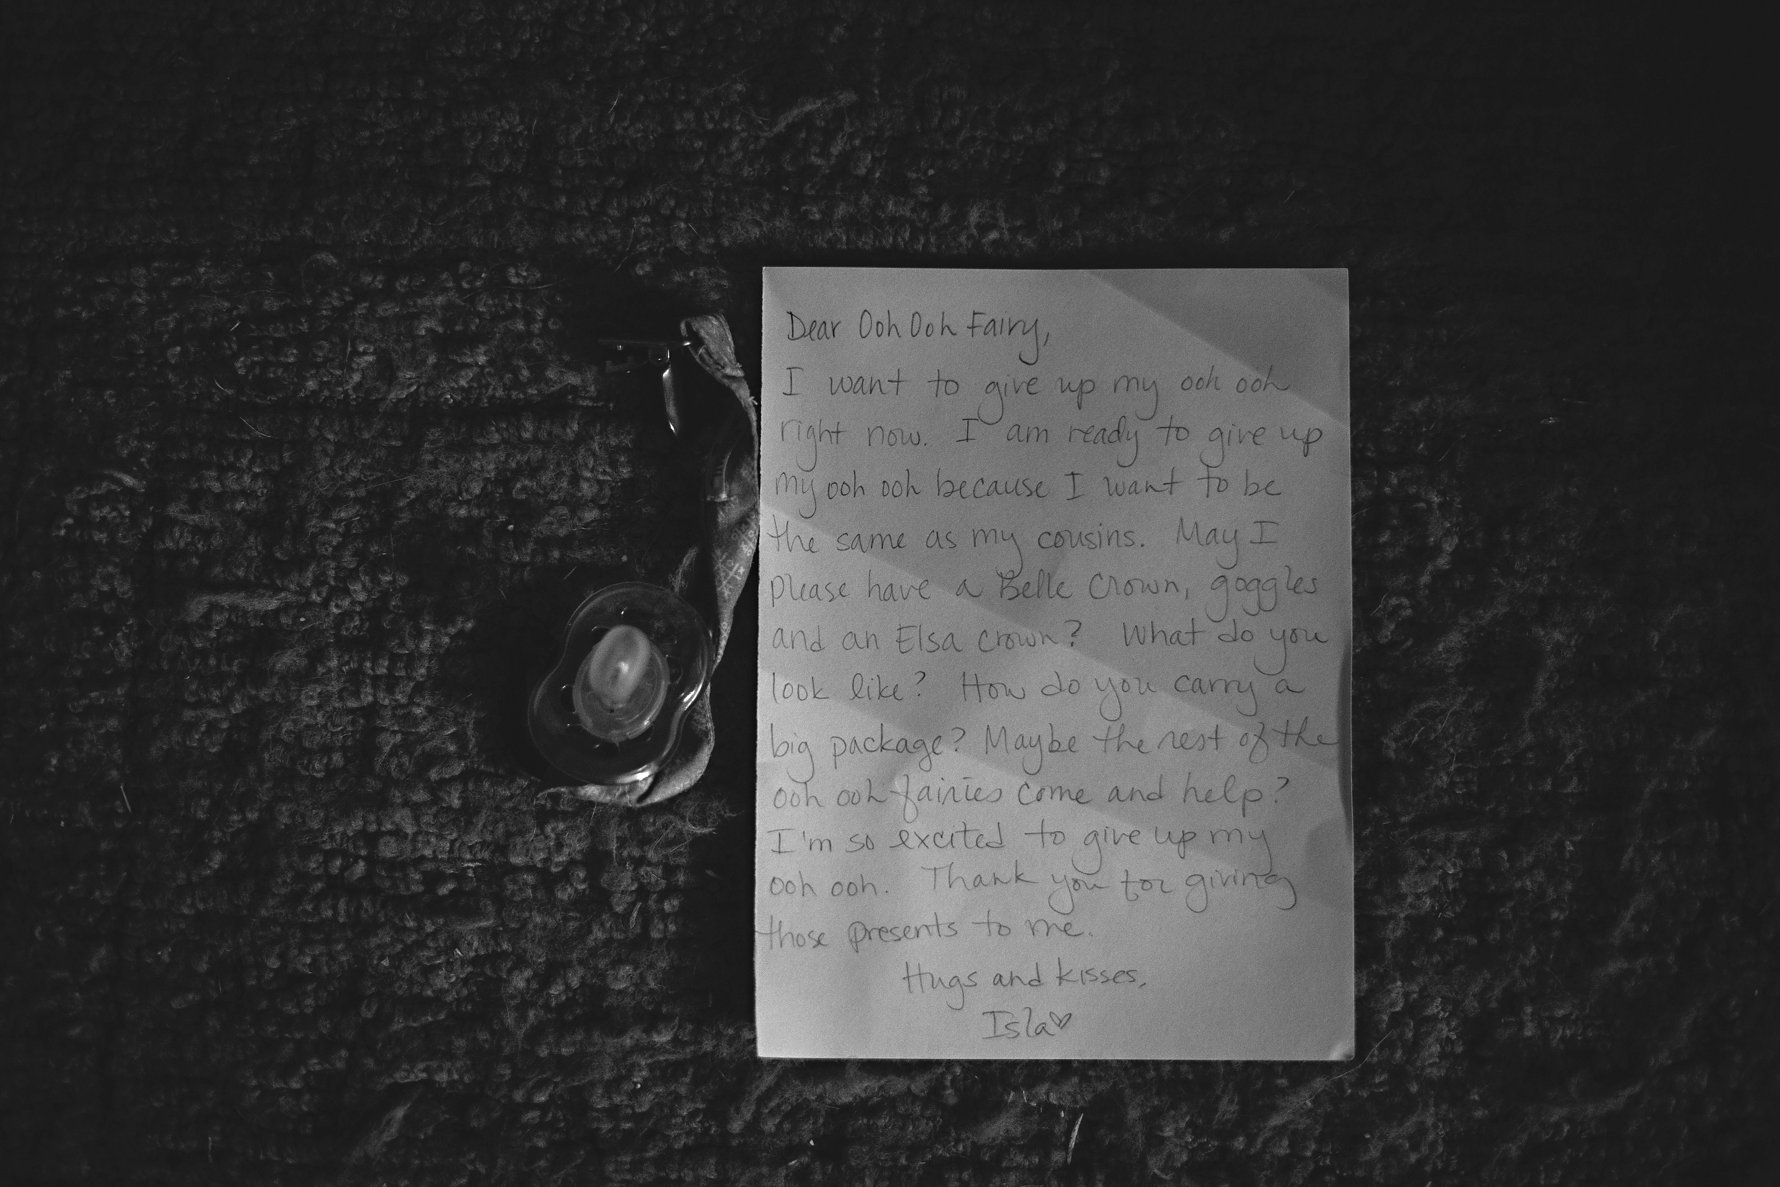 Dear Ooh Ooh Fairy,
I want to give up my ooh ooh
right now. I am ready to give up
my ooh ooh because I want to be
the same as my cousins. May I
please have a Belle Crown, goggles
and an Elsa crown? What do you
look like? How do you carry a
big package? Maybe the rest of the
ooh ooh fairies come and help?
I'm so excited to give up my
ooh ooh. Thank you for giving
those presents to me.
Hugs and kisses,
Isla♡